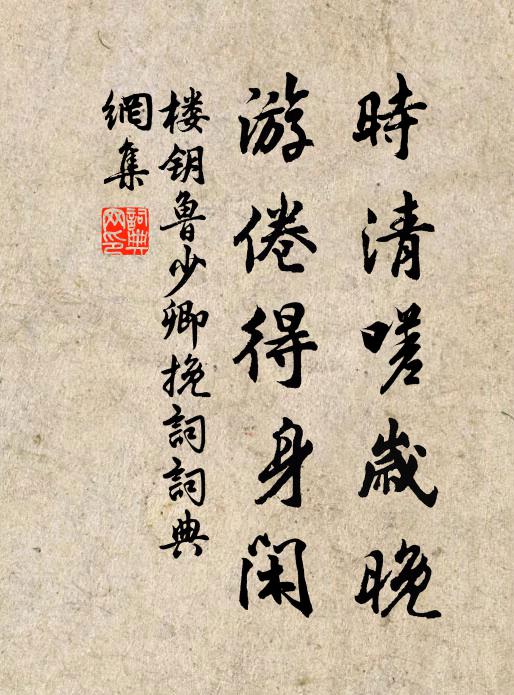 時清嗟歲晚
游倦得身閑
楼钥魯少卿挽詞詞典
網集
詞典网印